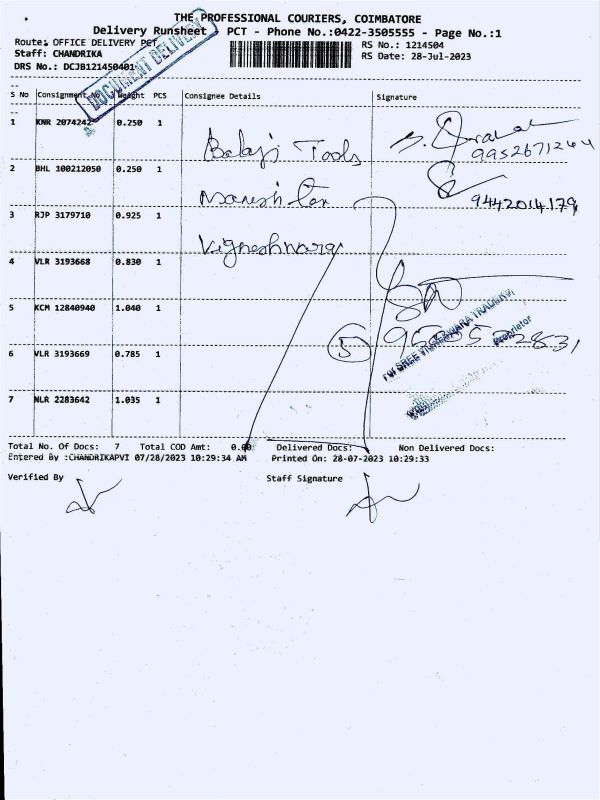 THE PROFESSIONAL COURIERS, COIMBATORE
Delivery Runsheet , PCT - Phone No.:0422-3505555 - Page No.:1
Route: OFFICE DELIVERY PCT
RS No.: 1214504
Staff: CHANDRIKA
RS Date: 28-Jul-2023
DRS No.: DCJB121450401
DOCUMENT DELIVERY
S No Consignment No Weight PCS Consignee Details Signature
1 KNR 2074242 0.250 1 Balaji Tools
9952671244
2 BHL 100212050 0.250 1
9442014179
3 RJP 3179710 0.925 1 Vigneshwara
4 VLR 3193668 0.830 1
5 KCM 12840940 1.040 1
For SREE VIGNESHWARA TRADERS,
Proprietor
5
6 VLR 3193669 0.785 1
7 NLR 2283642 1.035 1
Total No. Of Docs: 7 Total COD Amt: 0.00 Delivered Docs: Non Delivered Docs:
Entered By :CHANDRIKAPVI 07/28/2023 10:29:34 AM Printed On: 28-07-2023 10:29:33
Verified By Staff Signature